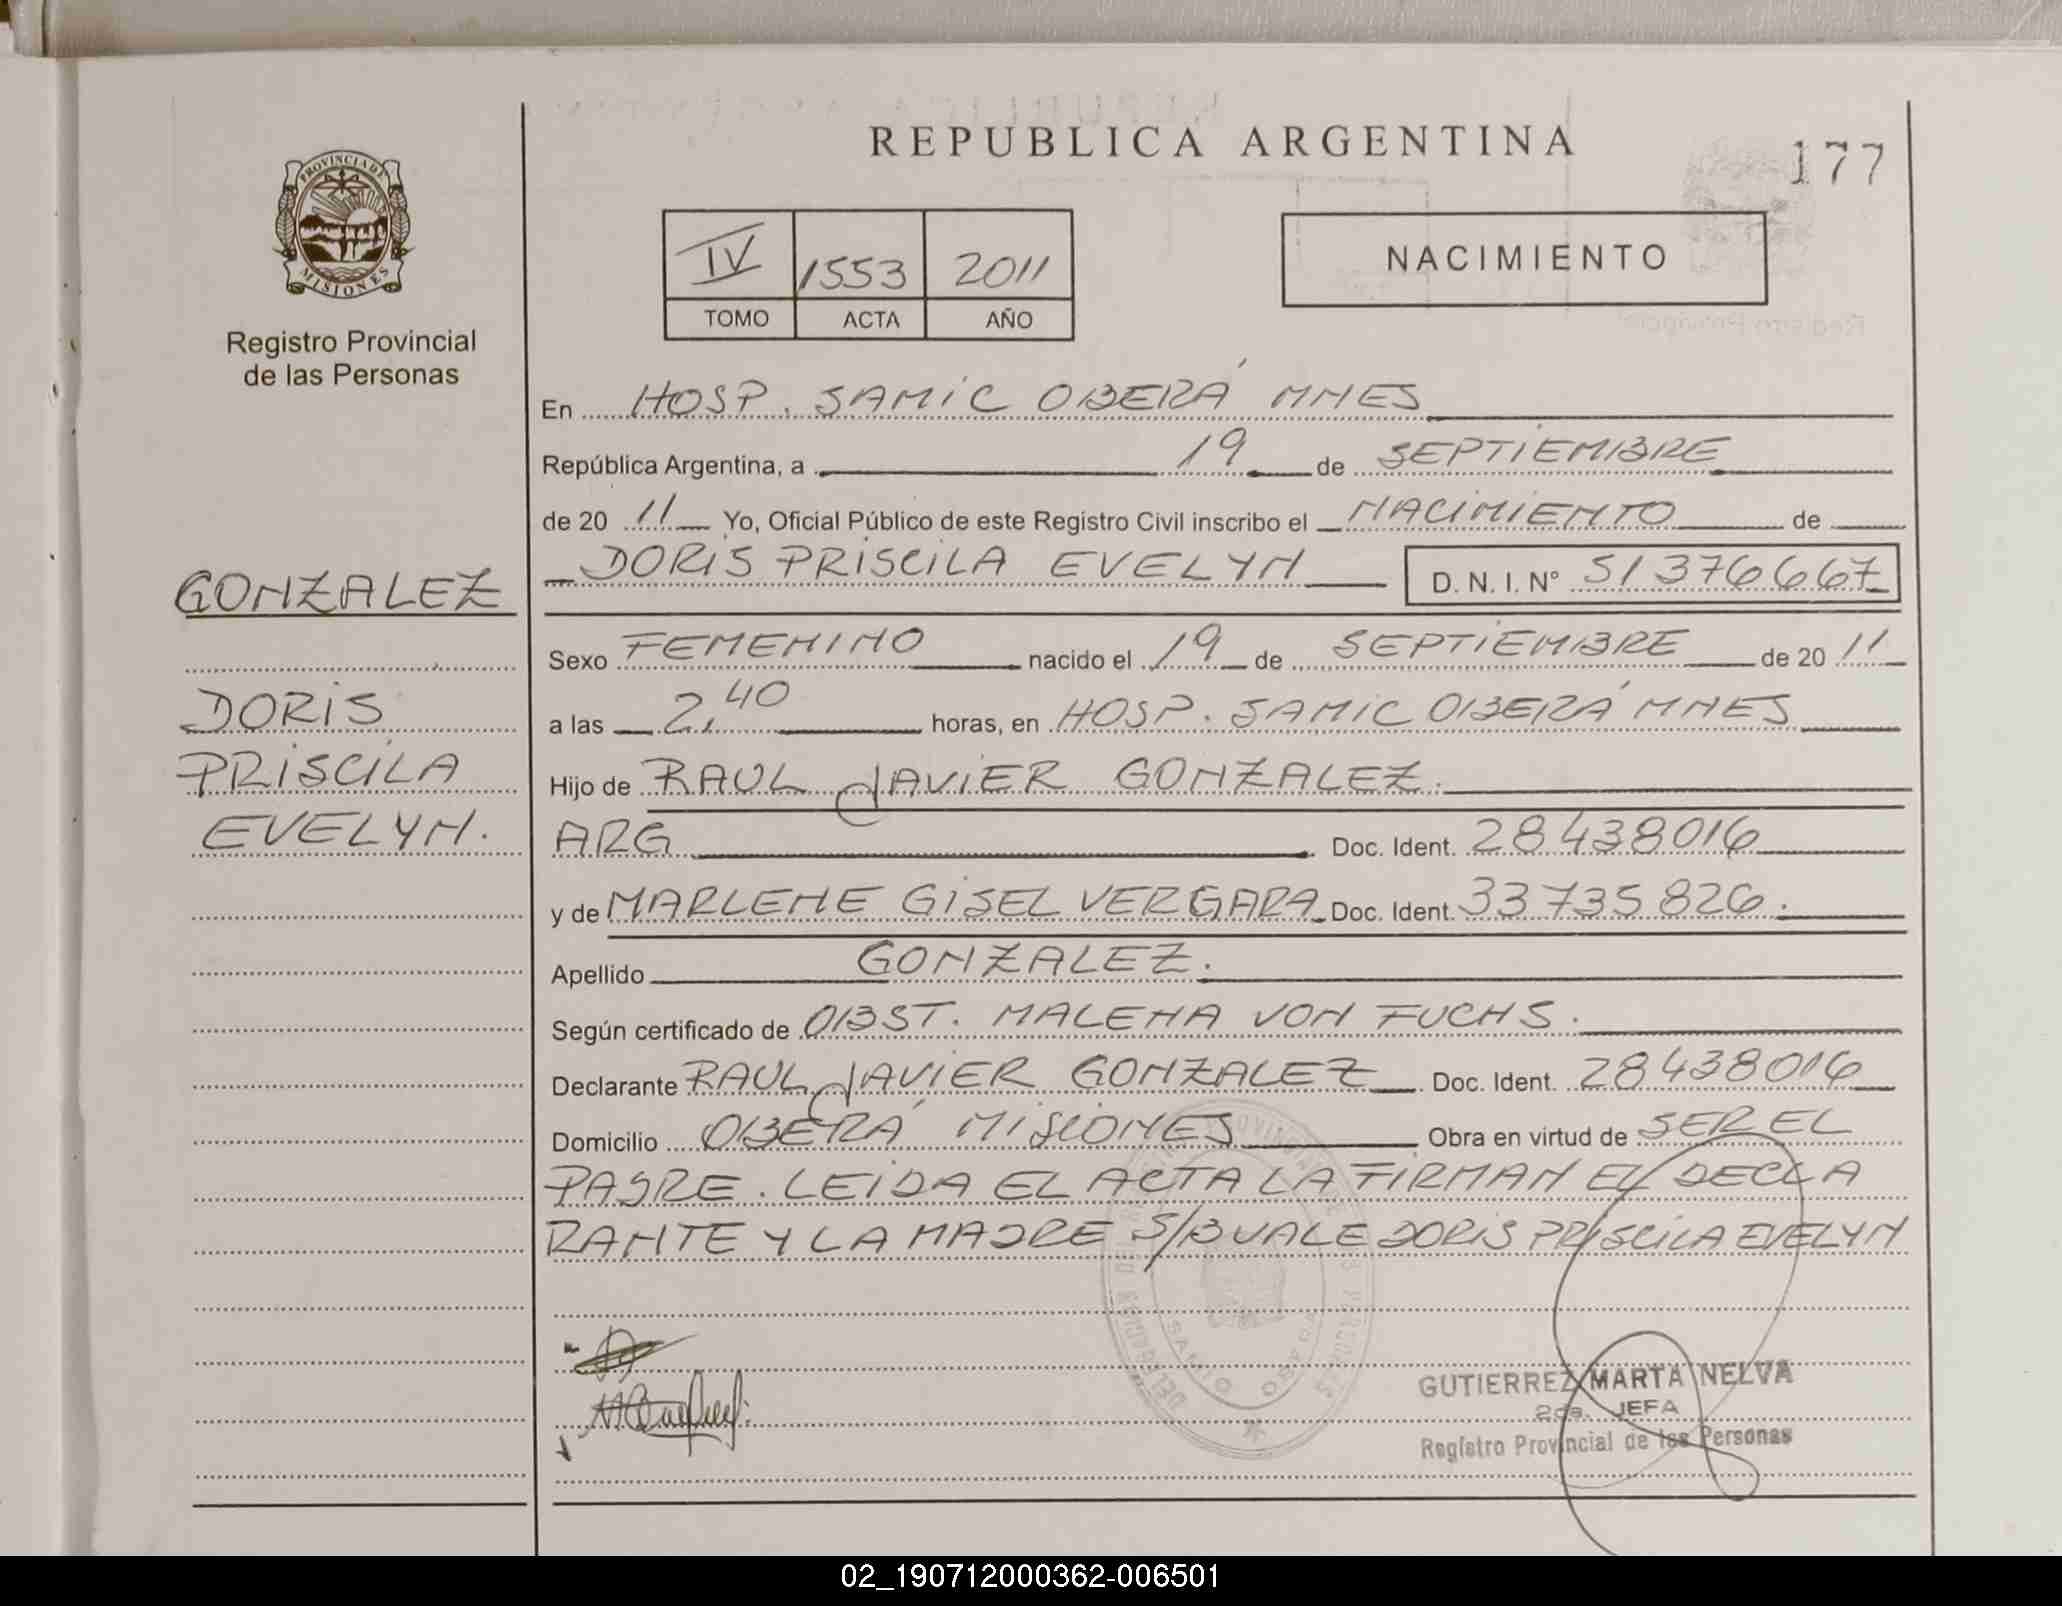 REPUBLICA ARGENTINA
177
PROVINCIA DE
MISIONES
Registro Provincial
de las Personas
IV 1553 2011
TOMO ACTA AÑO
NACIMIENTO
En HOSP. SAMIC OBERÁ MNES
República Argentina, a 19 de SEPTIEMBRE
de 20 11 Yo, Oficial Público de este Registro Civil inscribo el NACIMIENTO de
GONZALEZ
DORIS PRISCILA EVELYN D. N. I. N° 51376667
Sexo FEMENINO nacido el 19 de SEPTIEMBRE de 20 11
DORIS
a las 2,40 horas, en HOSP. SAMIC OBERÁ MNES
PRISCILA
Hijo de RAUL JAVIER GONZALEZ.
EVELYN.
ARG Doc. Ident. 28438016
y de MARLENE GISEL VERGARA Doc. Ident. 33735826.
Apellido GONZALEZ.
Según certificado de OBST. MALENA VON FUCHS.
Declarante RAUL JAVIER GONZALEZ Doc. Ident. 28438016
Domicilio OBERÁ MISIONES Obra en virtud de SER EL
PADRE. LEIDA EL ACTA LA FIRMAN EL DECLA
RANTE Y LA MADRE S/B VALE DORIS PRISCILA EVELYN
GUTIERREZ MARTA NELVA
2da. JEFA
Registro Provincial de las Personas
02_190712000362-006501